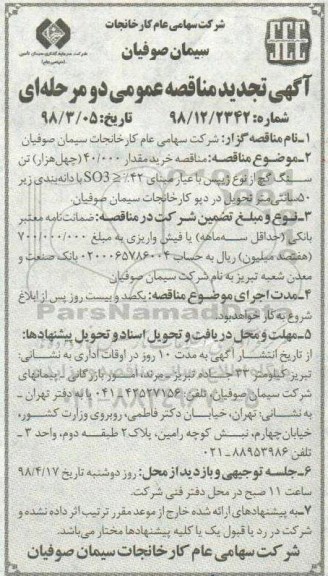 شرکت سهامی عام کارخانجات
سیمان صوفیان
آگهی تجدید مناقصه عمومی دو مرحله‌ای
شماره: ۹۸/۱۲/۲۳۴۲ تاریخ: ۹۸/۳/۰۵
۱-نام مناقصه گزار: شرکت سهامی عام کارخانجات سیمان صوفیان
۲-موضوع مناقصه: مناقصه خرید مقدار ۴۰/۰۰۰ (چهل‌هزار) تن
سنگ گچ از نوع ژیپس با عیار مبنای SO3≥۴۲٪ با دانه‌بندی زیر
۵۰سانتی‌متر تحویل در دپو کارخانجات سیمان صوفیان.
۳-نوع و مبلغ تضمین شرکت در مناقصه: ضمانت‌نامه معتبر
بانکی (حداقل سه‌ماهه) یا فیش واریزی به مبلغ ۷۰۰/۰۰۰/۰۰۰
(هفتصد میلیون) ریال به حساب ۰۲۰۰۰۶۵۷۸۶۰۰۴ بانک صنعت و
معدن شعبه تبریز به نام شرکت سیمان صوفیان
۴-مدت اجرای موضوع مناقصه: یکصد و بیست روز پس از ابلاغ
شروع به کار خواهد بود.
۵-مهلت و محل دریافت و تحویل اسناد و تحویل پیشنهادها:
از تاریخ انتشار آگهی به مدت ۱۰ روز در اوقات اداری به نشانی:
تبریز کیلومتر ۳۲ جاده تبریز - مرند، امور بازرگانی - پیمانهای
شرکت سیمان صوفیان، تلفن: ۴۲۵۲۷۱۵۶-۰۴۱ یا به دفتر تهران -
به نشانی: تهران، خیابان دکتر فاطمی، روبروی وزارت کشور،
خیابان چهارم، نبش کوچه رامین، پلاک۲ طبقه دوم، واحد ۳ -
تلفن ۸۸۹۵۳۹۸۶-۰۲۱
۶-جلسه توجیهی و بازدید از محل: روز دوشنبه تاریخ ۹۸/۴/۱۷
ساعت ۱۱ صبح در محل دفتر فنی شرکت.
۷-به پیشنهادهای ارائه شده خارج از موعد مقرر ترتیب اثر داده نشده و
شرکت در رد یا قبول یک یا کلیه پیشنهادها مختار می‌باشد.
شرکت سهامی عام کارخانجات سیمان صوفیان